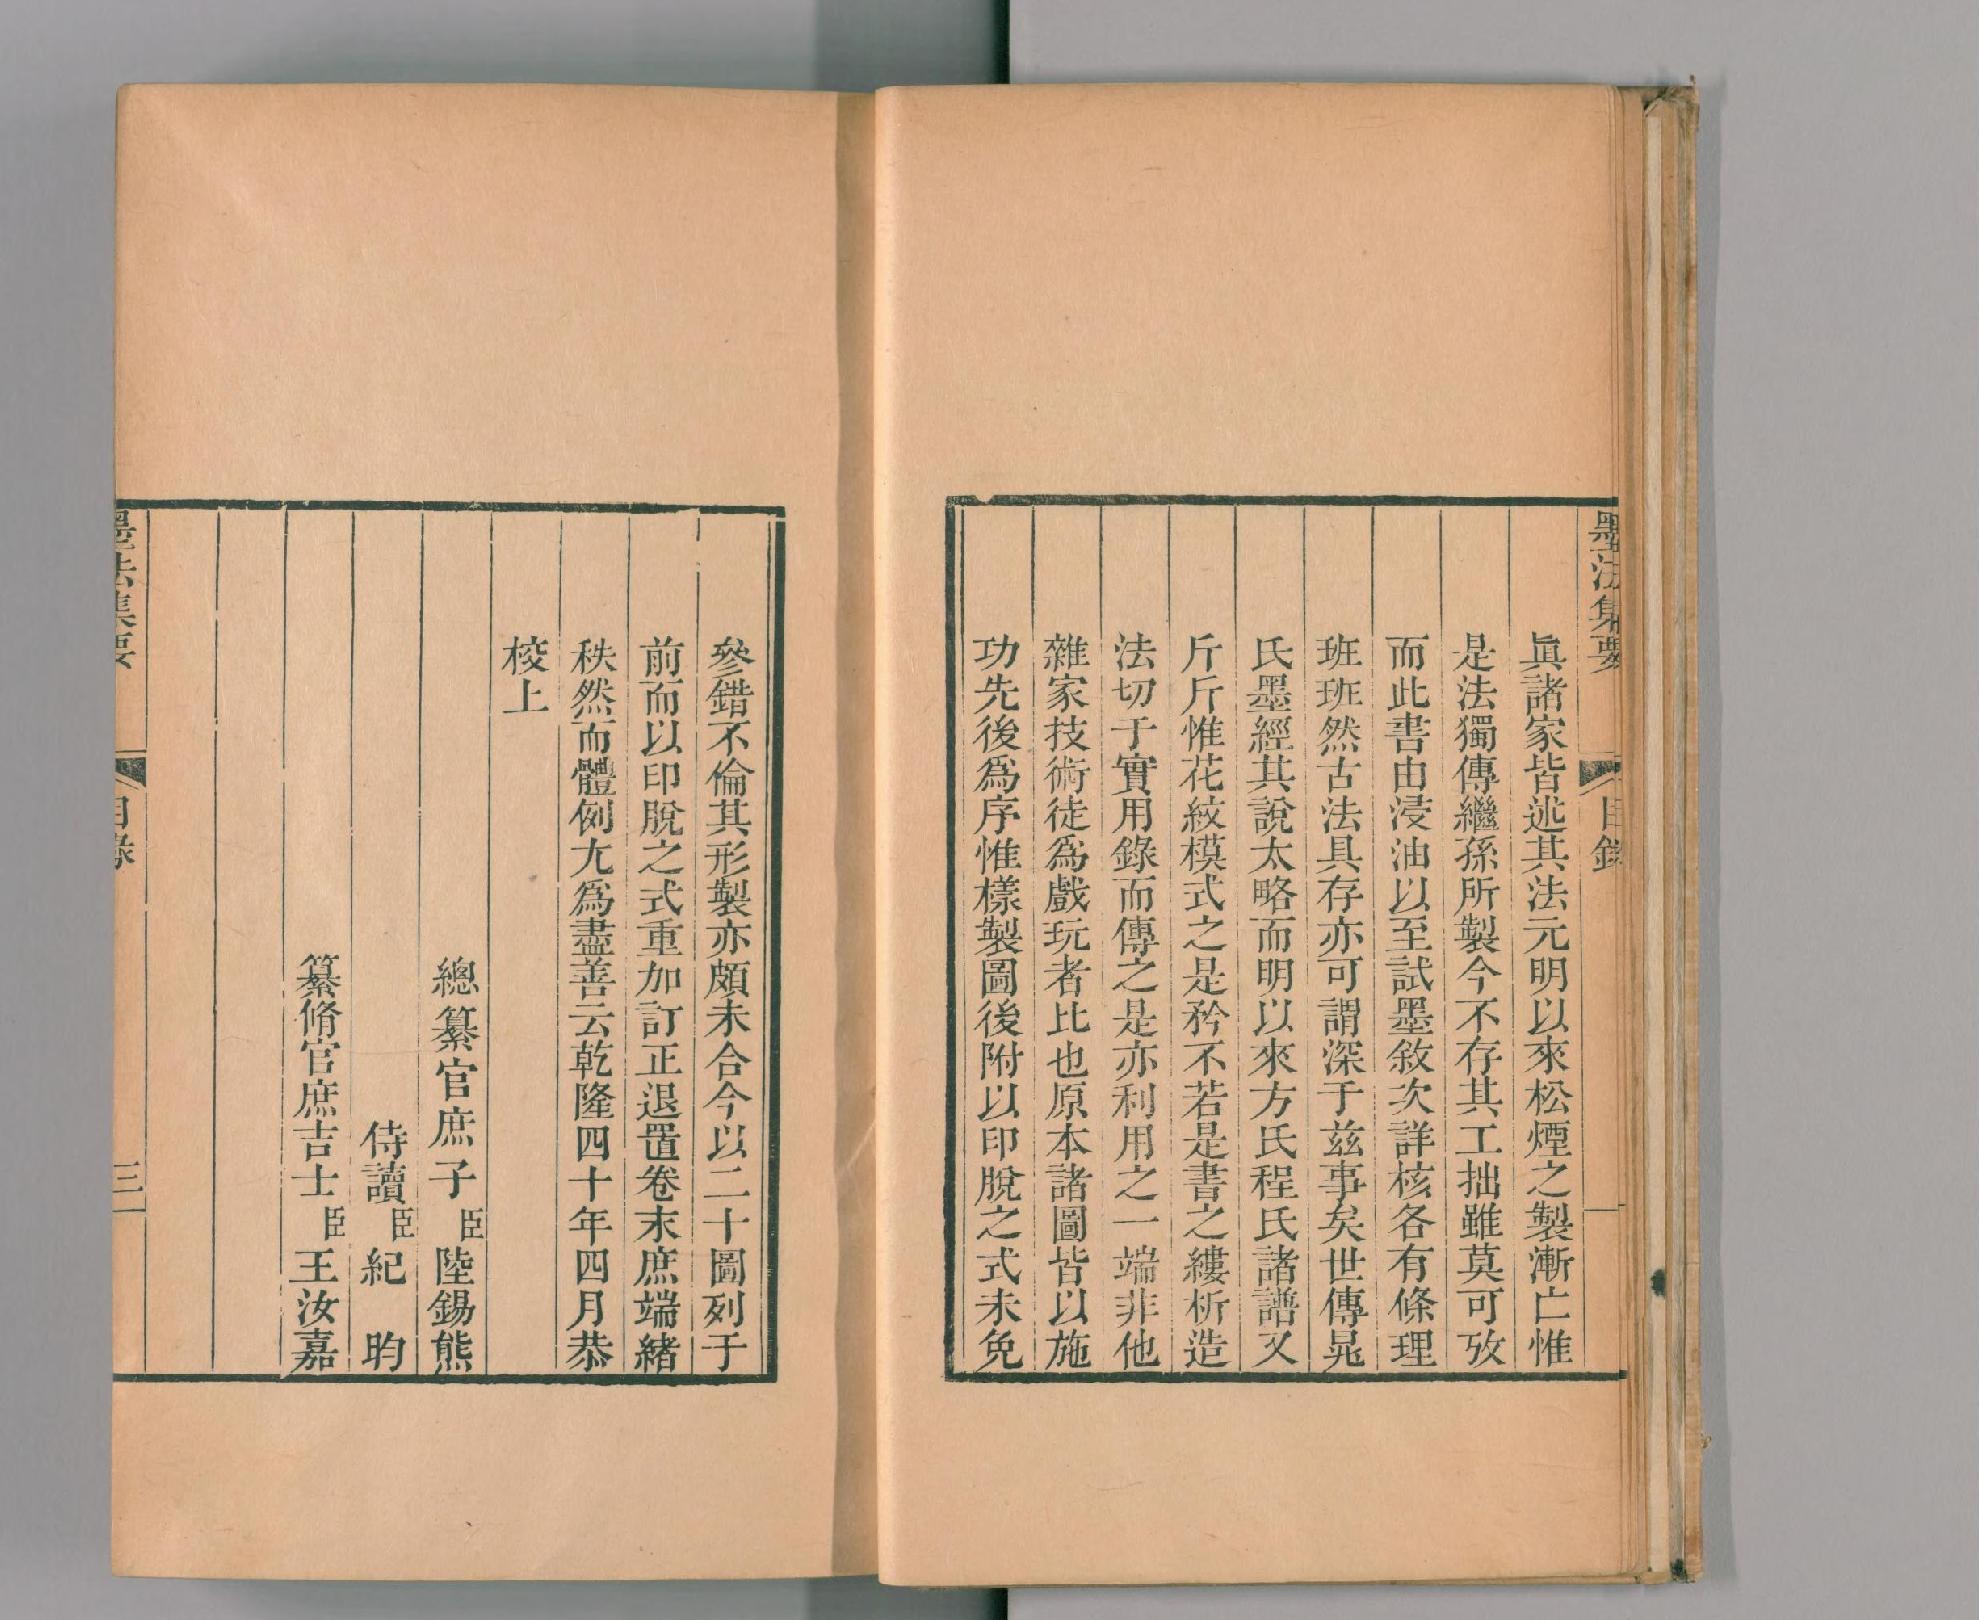 墨法集要
目錄
眞諸家皆述其法元明以來松煙之製漸亡惟
是法獨傳繼孫所製今不存其工拙雖莫可攷
而此書由浸油以至試墨敘次詳核各有條理
班班然古法具存亦可謂深于兹事矣世傳晁
氏墨經其說太略而明以來方氏程氏諸譜又
斤斤惟花紋模式之是矜不若是書之縷析造
法切于實用錄而傳之是亦利用之一端非他
雜家技術徒爲戲玩者比也原本諸圖皆以施
功先後爲序惟樣製圖後附以印脫之式未免
參錯不倫其形製亦頗未合今以二十圖列于
前而以印脫之式重加訂正退置卷末庶端緒
秩然而體例尤爲盡善云乾隆四十年四月恭
校上
總纂官庶子臣陸錫熊
侍讀臣紀昀
纂脩官庶吉士臣王汝嘉
墨法集要
目錄
三